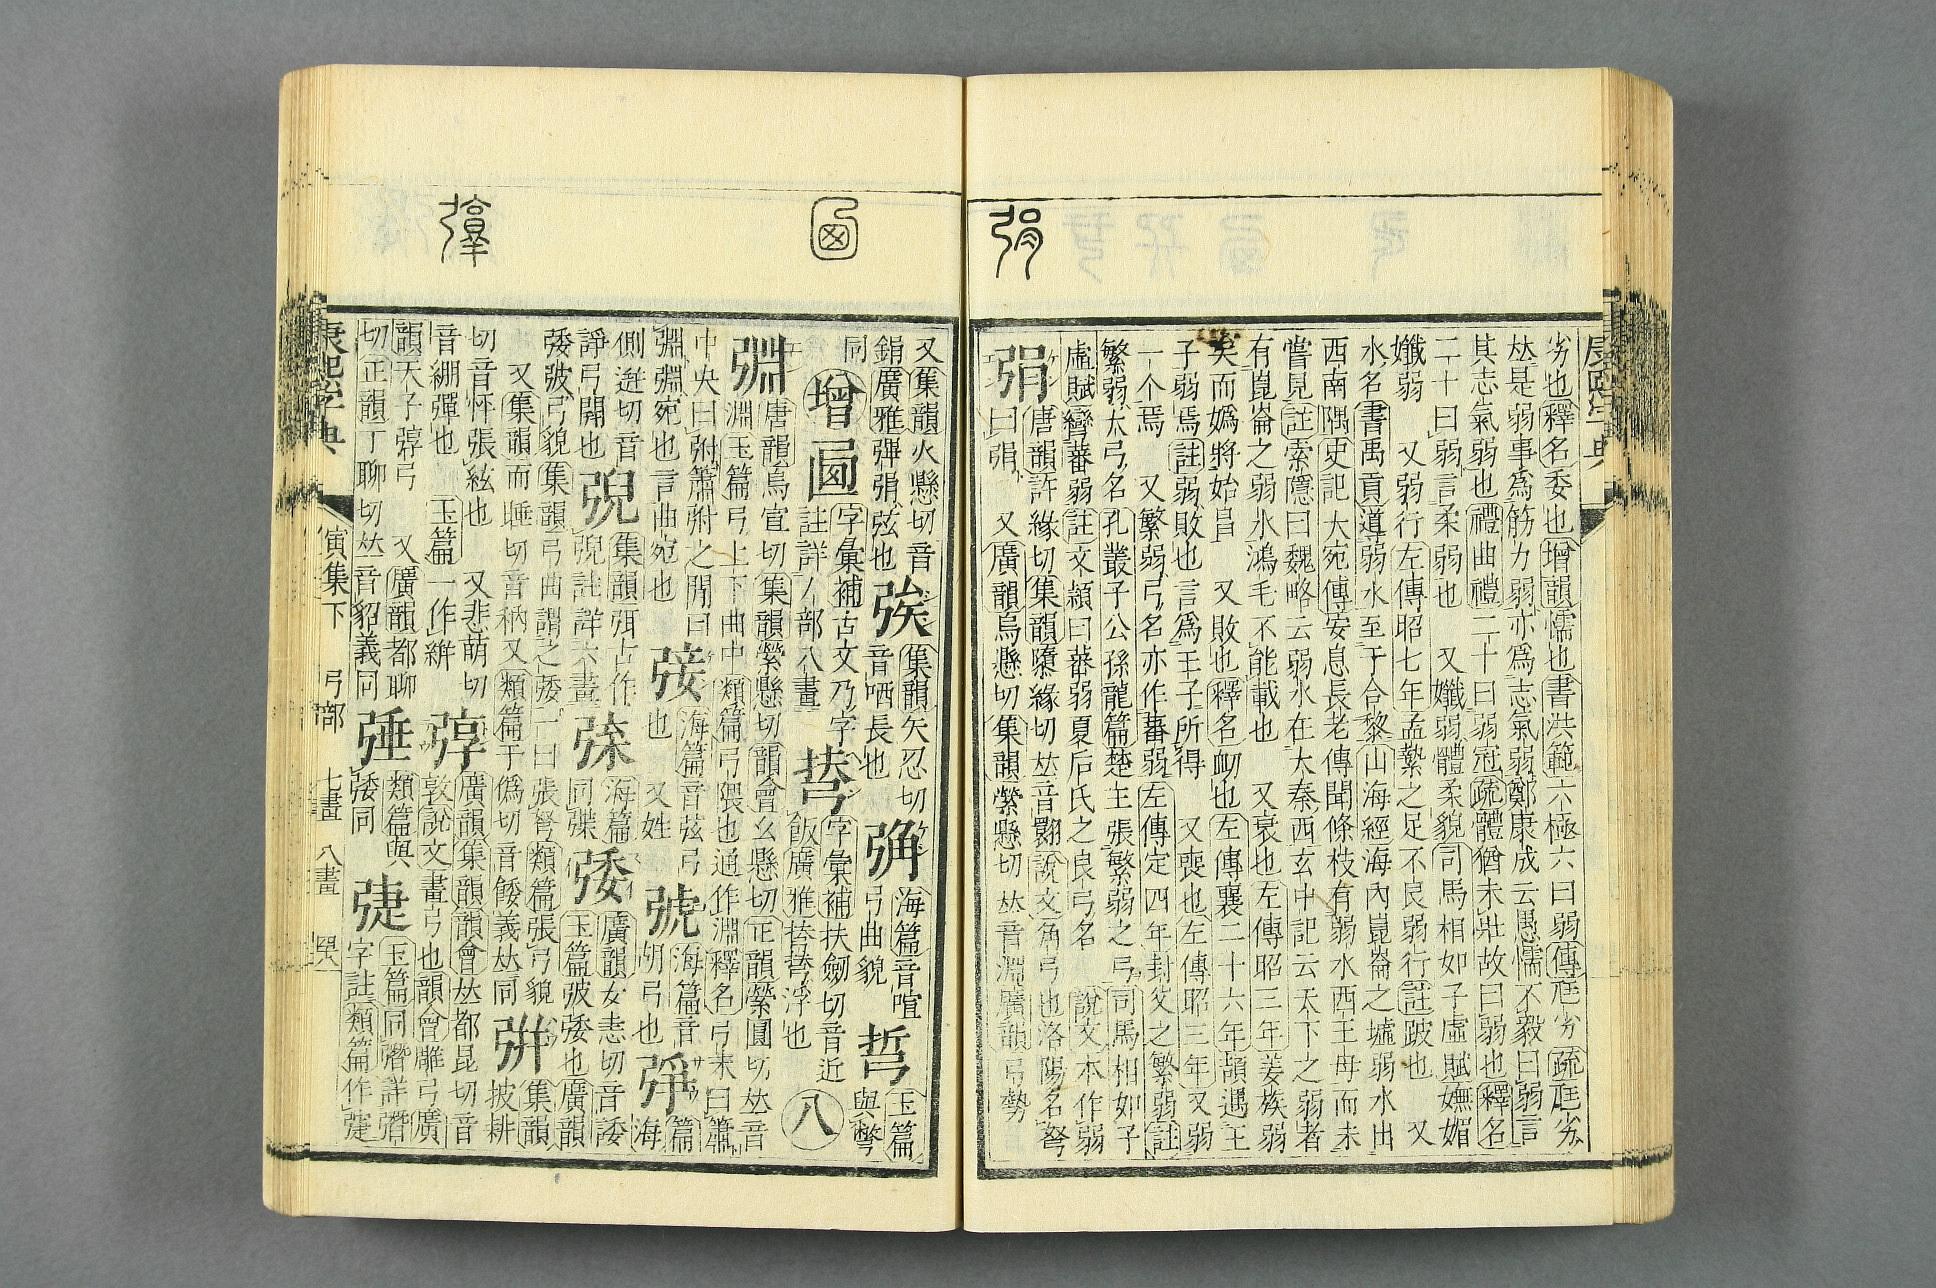 康熙字典
劣也釋名委也增韻懦也書洪範六極六曰弱傳尫劣疏尫劣
𠀤是弱事爲筋力弱亦爲志氣弱鄭康成云愚懦不毅曰弱言
其志氣弱也禮曲禮二十曰弱冠疏體猶未壯故曰弱也釋名
二十曰弱言柔弱也 又孅弱體柔貌司馬相如子虛賦嫵媚
孅弱 又弱行左傳昭七年孟縶之足不良弱行註跛也 又
水名書禹貢道弱水至于合黎山海經海內崑崙之墟弱水出
西南隅史記大宛傳安息長老傳聞條枝有弱水西王母而未
嘗見註索隱曰魏略云弱水在大秦西玄中記云天下之弱者
有崑崙之弱水鴻毛不能載也 又衰也左傳昭三年姜族弱
矣而嬀將始昌 又敗也釋名衂也左傳襄二十六年頡遇王
子弱焉註弱敗也言爲王子所得 又喪也左傳昭三年又弱
一个焉 又繁弱弓名亦作蕃弱左傳定四年封父之繁弱註
繁弱大弓名孔叢子公孫龍篇楚王張繁弱之弓司馬相如子
虛賦彎蕃弱註文穎曰蕃弱夏后氏之良弓名 說文本作弱
弲
唐韻許緣切集韻隳緣切𠀤音翾說文角弓也洛陽名弩
曰弲 又廣韻烏懸切集韻縈懸切𠀤音淵廣韻弓勢
又集韻火懸切音
鋗廣雅彈弲弦也
同
集韻矢忍切
音哂長也
海篇音喧
弓曲貌
玉篇
與彆
增
字彙補古文乃字
註詳丿部八畫
字彙補扶劒切音近
飯廣雅𢫦𢫦浮也
八
弸
唐韻烏宣切集韻縈懸切韻會幺懸切正韻縈圓切𠀤音
淵玉篇弓上下曲中類篇弓隈也通作淵釋名弓末曰簫
中央曰弣簫弣之閒曰
宛也言曲宛也
海篇音弦弓
也 又姓
海篇音
胡弓也
海篇
側迸切音
諍弓開也
集韻弭古作
註詳六畫
海篇
同弽
廣韻女恚切音諉
玉篇弢也廣韻
弓貌集韻弓曲謂之 一曰張弩類篇張弓貌集韻
又集韻而睡切音枘又類篇于僞切音餧義𠀤同
披耕
切音怦張絃也 又悲萌切
音繃彈也 玉篇一作絣
弴
廣韻集韻韻會𠀤都昆切音
敦說文畫弓也韻會雕弓廣
韻天子弴弓 又廣韻都聊
切正韻丁聊切𠀤音貂義同
類篇與
同
玉篇同彇詳彇
字註類篇作
康熙字典 寅集下 弓部 七畫 八畫